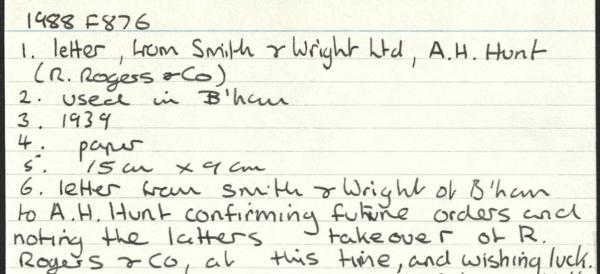 1988 F876
1. letter, from Smith & Wright Ltd, A.H. Hunt
(R. Rogers & Co)
2. used in B'ham
3. 1939
4. paper
5. 15 cm x 9 cm
6. letter from Smith & Wright of B'ham
to A.H. Hunt confirming future orders and
noting the latters takeover of R.
Rogers & Co, at this time, and wishing luck.